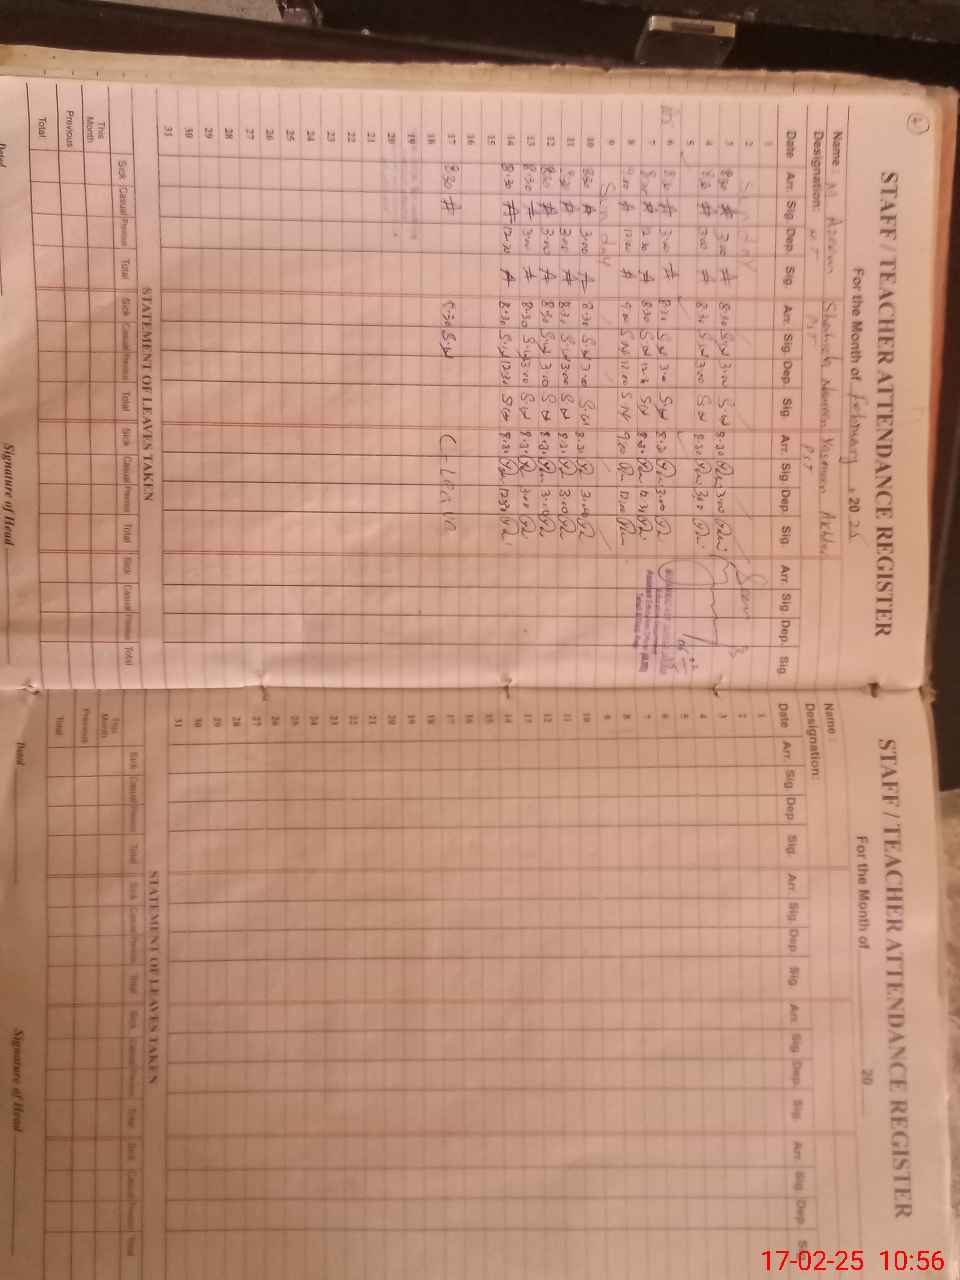 STAFF / TEACHER ATTENDANCE REGISTER
For the Month of February 2025
Name: M Shabnum Noureen Yasmeen Akhter
Designation: PST PST
Date Arr. Sig. Dep. Sig. Arr. Sig. Dep. Sig. Arr. Sig. Dep. Sig. Arr. Sig. Dep. Sig.
1
2 Sunday
3 8:30 3:00 8:30 S.N 3:00 S.N 8:30 3:00
4 8:30 3:00 8:30 S.N 3:00 S.N 8:30 3:00
5
6 8:30 3:00 8:30 S.N 3:00 S.N 8:30 3:00
7 8:30 12:30 8:30 S.N 12:30 S.N 8:30 12:30
8 9:00 12:00 9:00 S.N 12:00 S.N 9:00 12:00
9 Sunday
10 8:30 3:00 8:30 S.N 3:00 S.N 8:30 3:00
11 8:30 3:00 8:30 S.N 3:00 S.N 8:30 3:00
12 8:30 3:00 8:30 S.N 3:00 S.N 8:30 3:00
13 8:30 3:00 8:30 S.N 3:00 S.N 8:30 3:00
14 8:30 12:30 8:30 S.N 12:30 S.N 8:30 12:30
15
16
17 8:30 8:30 S.N C-Leave
18
19
20
21
22
23
24
25
26
27
28
29
30
31
STATEMENT OF LEAVES TAKEN
Sick Casual Total Sick Casual Total Sick Casual Total Sick Casual Total
This Month
Previous
Total:
Dated Signature of Head
STAFF / TEACHER ATTENDANCE REGISTER
For the Month of 20
Name:
Designation:
Date Arr. Sig. Dep. Sig. Arr. Sig. Dep. Sig. Arr. Sig. Dep. Sig. Arr. Sig. Dep. Sig.
1
2
3
4
5
6
7
8
9
10
11
12
13
14
15
16
17
18
19
20
21
22
23
24
25
26
27
28
29
30
31
STATEMENT OF LEAVES TAKEN
Sick Casual Total Sick Casual Total Sick Casual Total Sick Casual Total
This Month
Previous
Total
Dated Signature of Head
17-02-25 10:56